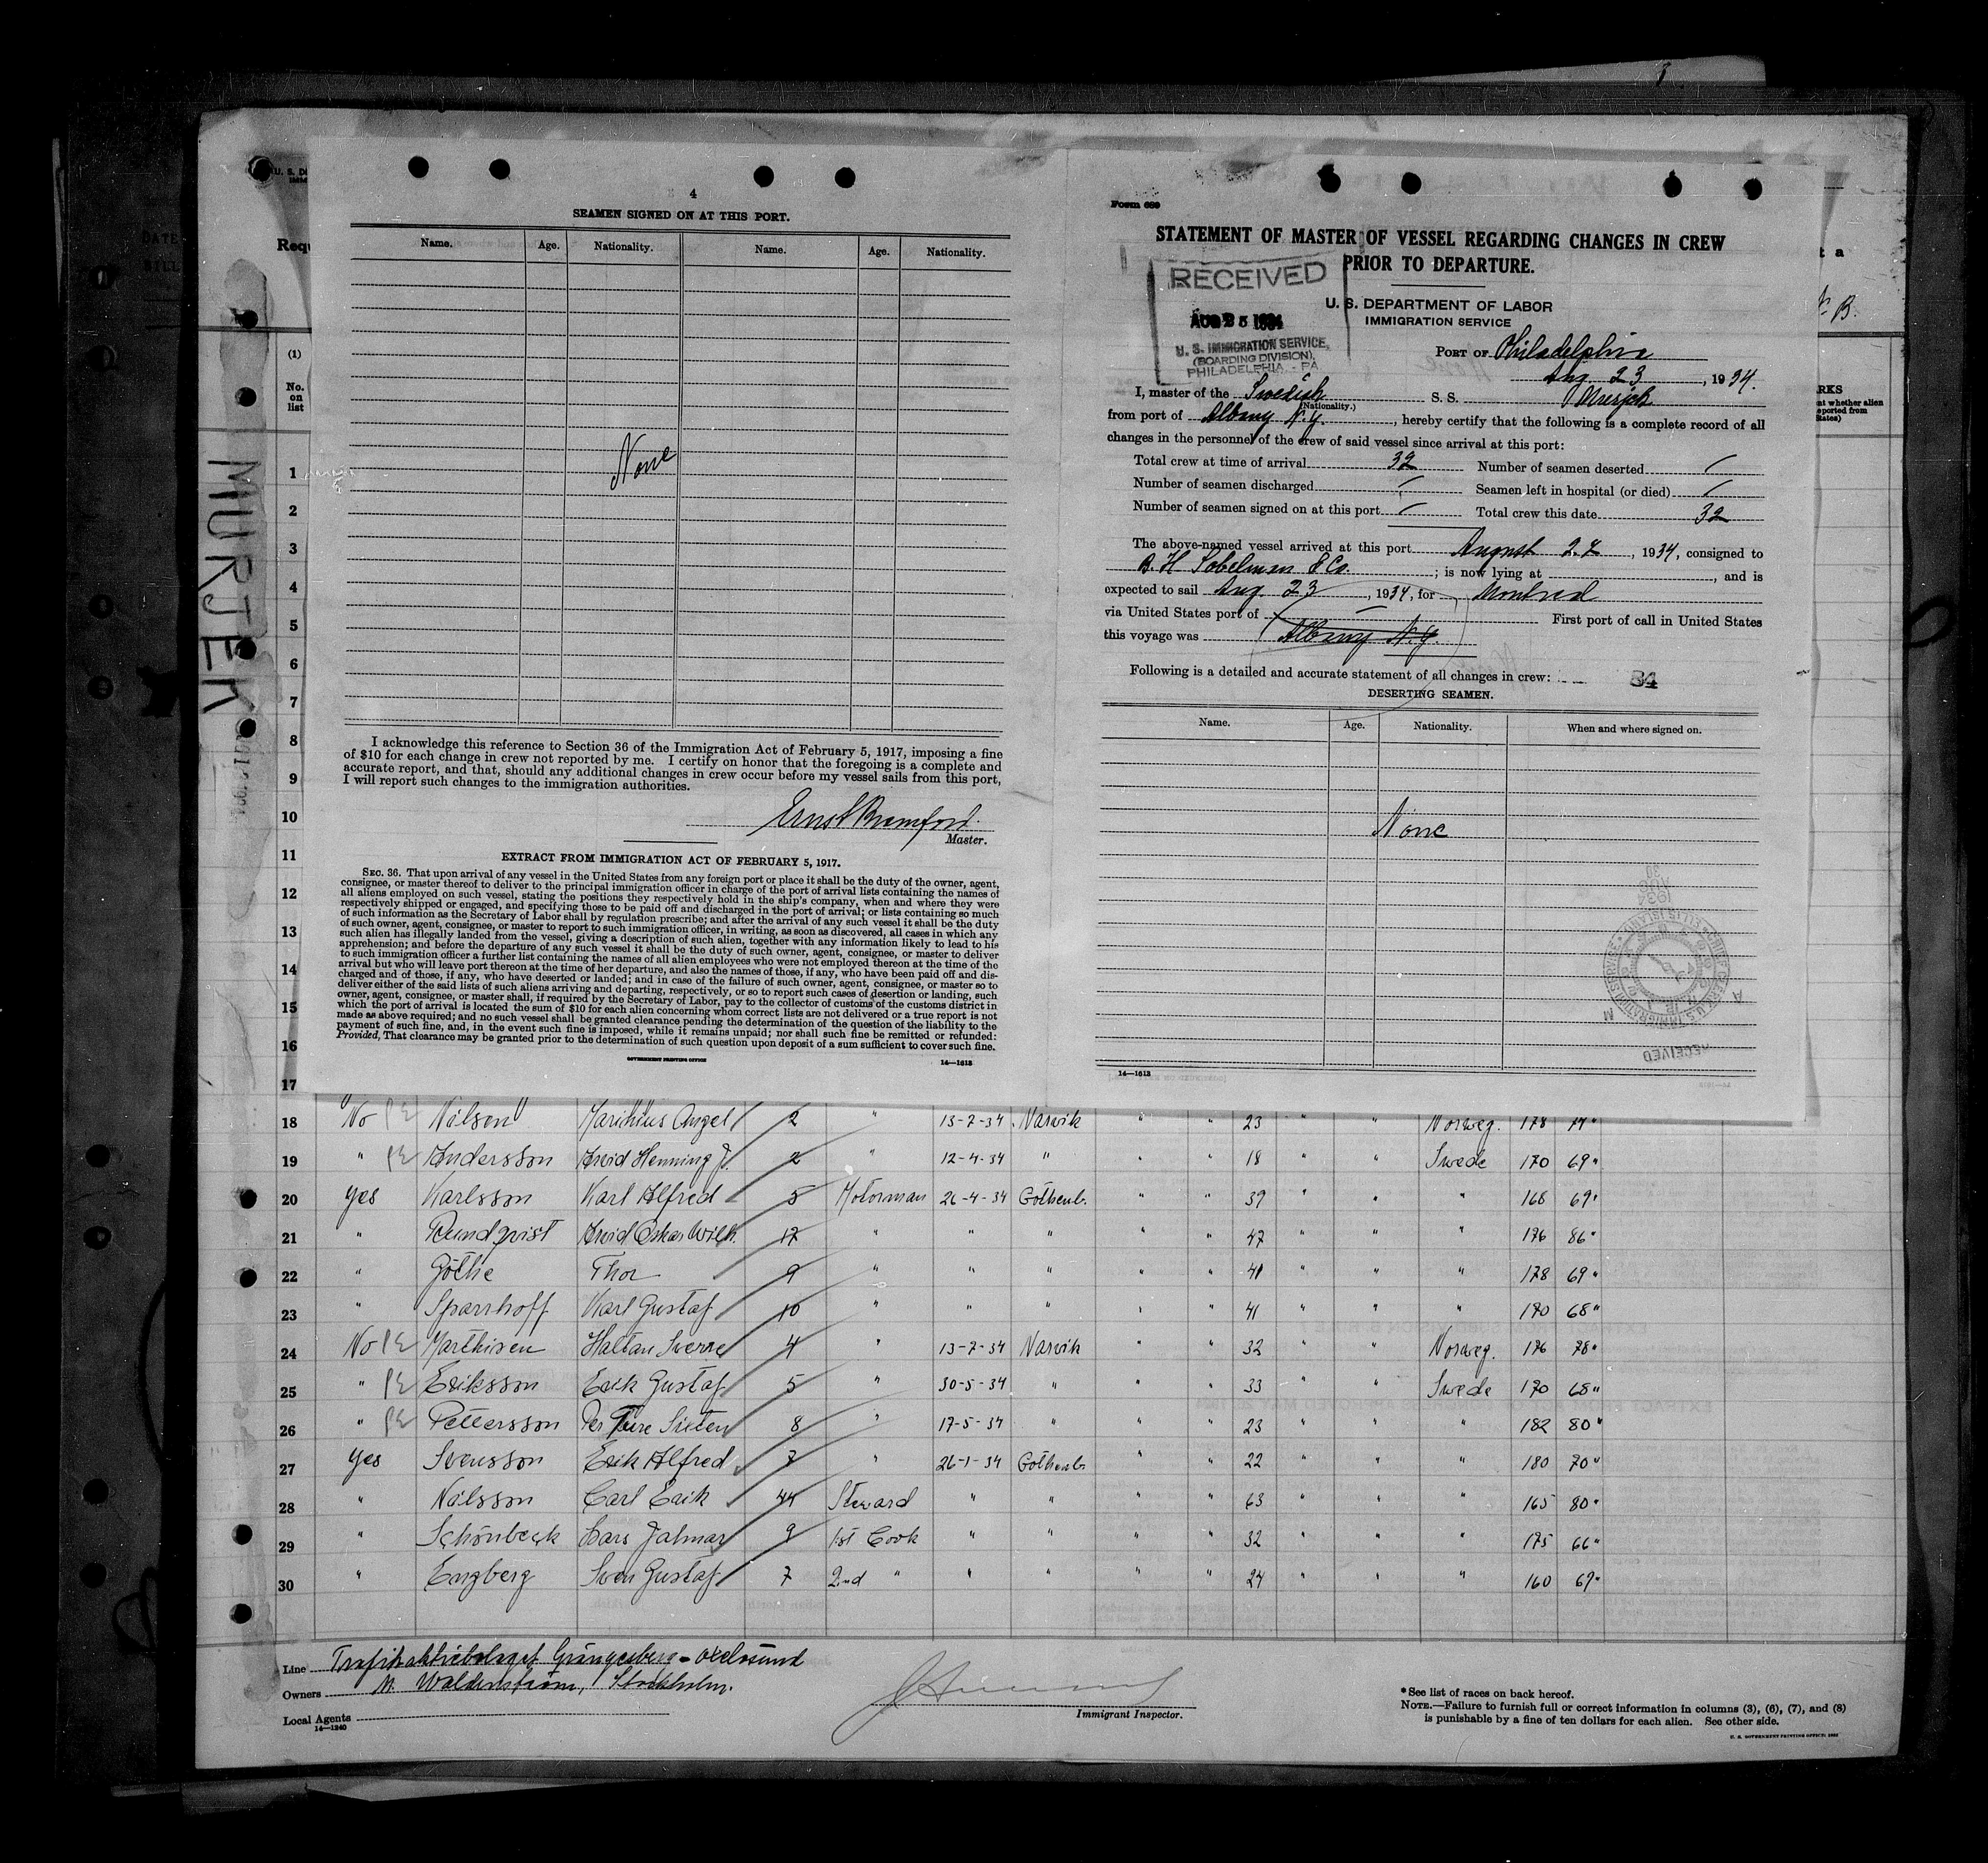 4
SEAMEN SIGNED ON AT THIS PORT.
Name. Age. Nationality. Name. Age. Nationality.
None
I acknowledge this reference to Section 36 of the Immigration Act of February 5, 1917, imposing a fine
of $10 for each change in crew not reported by me. I certify on honor that the foregoing is a complete and
accurate report, and that, should any additional changes in crew occur before my vessel sails from this port,
I will report such changes to the immigration authorities.
Ernst Bramford.
Master.
EXTRACT FROM IMMIGRATION ACT OF FEBRUARY 5, 1917.
SEC. 36. That upon arrival of any vessel in the United States from any foreign port or place it shall be the duty of the owner, agent,
consignee, or master thereof to deliver to the principal immigration officer in charge of the port of arrival lists containing the names of
all aliens employed on such vessel, stating the positions they respectively hold in the ship's company, when and where they were
respectively shipped or engaged, and specifying those to be paid off and discharged in the port of arrival; or lists containing so much
of such information as the Secretary of Labor shall by regulation prescribe; and after the arrival of any such vessel it shall be the duty
of such owner, agent, consignee, or master to report to such immigration officer, in writing, as soon as discovered, all cases in which any
such alien has illegally landed from the vessel, giving a description of such alien, together with any information likely to lead to his
apprehension; and before the departure of any such vessel it shall be the duty of such owner, agent, consignee, or master to deliver
to such immigration officer a further list containing the names of all alien employees who were not employed thereon at the time of the
arrival but who will leave port thereon at the time of her departure, and also the names of those, if any, who have been paid off and dis-
charged and of those, if any, who have deserted or landed; and in case of the failure of such owner, agent, consignee, or master so to
deliver either of the said lists of such aliens arriving and departing, respectively, or so to report such cases of desertion or landing, such
owner, agent, consignee, or master shall, if required by the Secretary of Labor, pay to the collector of customs of the customs district in
which the port of arrival is located the sum of $10 for each alien concerning whom correct lists are not delivered or a true report is not
made as above required; and no such vessel shall be granted clearance pending the determination of the question of the liability to the
payment of such fine, and, in the event such fine is imposed, while it remains unpaid; nor shall such fine be remitted or refunded:
Provided, That clearance may be granted prior to the determination of such question upon deposit of a sum sufficient to cover such fine.
GOVERNMENT PRINTING OFFICE 14—1613
Form 689
STATEMENT OF MASTER OF VESSEL REGARDING CHANGES IN CREW
PRIOR TO DEPARTURE.
RECEIVED
AUG 25 1934
U. S. IMMIGRATION SERVICE,
(BOARDING DIVISION),
PHILADELPHIA - PA
U. S. DEPARTMENT OF LABOR
IMMIGRATION SERVICE
PORT OF Philadelphia
Aug 23, 1934.
I, master of the Swedish S. S. Murjek
(Nationality.)
from port of Albany N.Y., hereby certify that the following is a complete record of all
changes in the personnel of the crew of said vessel since arrival at this port:
Total crew at time of arrival 32 Number of seamen deserted /
Number of seamen discharged / Seamen left in hospital (or died) /
Number of seamen signed on at this port / Total crew this date 32
The above-named vessel arrived at this port August 22, 1934, consigned to
B. H Sobelman & Co.; is now lying at , and is
expected to sail Aug 23, 1934, for Montreal
via United States port of — First port of call in United States
this voyage was Albany N.Y.
Following is a detailed and accurate statement of all changes in crew: 34
DESERTING SEAMEN.
Name. Age. Nationality. When and where signed on.
None
RECEIVED
14—1613
MURJEK
U. S. D
Requ
(1)
No. on list
1
2
3
4
5
6
7
8
9
10
11
12
13
14
15
16
17
18 No Nilsen Marinius Angel 2 " 13-7-34 Narvik " " 23 " " Norweg. 178 74"
19 " Andersson Arvid Henning J. 2 " 12-4-34 " " " 18 " " Swede 170 69"
20 yes Karlsson Karl Alfred 5 Motorman 26-4-34 Gothenb. " " 39 " " " 168 69"
21 " Rundqvist Arvid Oskar Wilh. 17 " " " " " 47 " " " 176 86"
22 " Göthe Thor 9 " " " " " 41 " " " 178 69"
23 " Sparrhoff Karl Gustaf 10 " " " " " 41 " " " 170 68"
24 No Marthisen Haltan Sverre 4 " 13-7-34 Narvik " " 32 " " Norweg. 176 78"
25 " Eriksson Erik Gustaf 5 " 30-5-34 " " " 33 " " Swede 170 68"
26 " Pettersson Per Ture Sixten 8 " 17-5-34 " " " 23 " " " 182 80"
27 yes Svensson Erik Alfred 7 " 26-1-34 Gothenb. " " 22 " " " 180 70"
28 " Nilsson Carl Erik 44 Steward " " " " 63 " " " 165 80"
29 " Schönbeck Lars Jalmar 9 1st Cook " " " " 32 " " " 175 66"
30 " Engberg Sven Gustaf 7 2nd " " " " " 24 " " " 160 67"
Line Trafikaktiebolaget Grängesberg-Oxelösund
Owners M. Waldenström, Stockholm.
Local Agents
14—1240
Immigrant Inspector.
*See list of races on back hereof.
NOTE.—Failure to furnish full or correct information in columns (3), (6), (7), and (8)
is punishable by a fine of ten dollars for each alien. See other side.